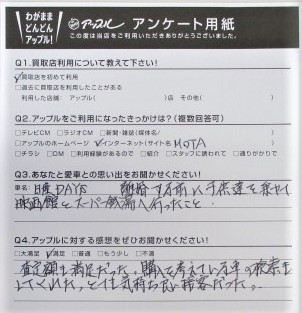 わがまま
どんどん
アップル!
アップル アンケート用紙
この度は当店をご利用いただきありがとうございました。
Q1.買取店利用について教えて下さい!
☑買取店を初めて利用
□過去に買取店を利用したことがある
利用した店舗: アップル( )店 その他( )
Q2.アップルをご利用になったきっかけは?(複数回答可)
□テレビCM □ラジオCM □新聞・雑誌(媒体名/ )
□アップルのホームページ ☑インターネット(サイト名/MOTA )
□チラシ □DM □利用経験があるので □紹介 □スタッフに誘われて □通りがかりで
Q3.あなたと愛車との思い出をお聞かせください!
車名: 日産DAYS 離婚する前に子供達を乗せて
映画館とスーパー銭湯へ行ったこと。
Q4.アップルに対する感想をぜひお聞かせください!
□大満足 ☑満足 □普通 □もう少し □不満
査定額も満足だった。購入を考えている車の検索も
してくれた。とても気持ち良い接客だった。